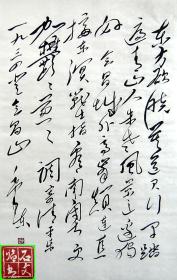 东方欲晓莫道君行早踏
遍青山人未老风景这边独
好会昌城外高峰颠连直
接东溟战士指看南粤更
加鬱鬱葱葱 调寄清平乐
一九三四 登会昌山 毛泽东